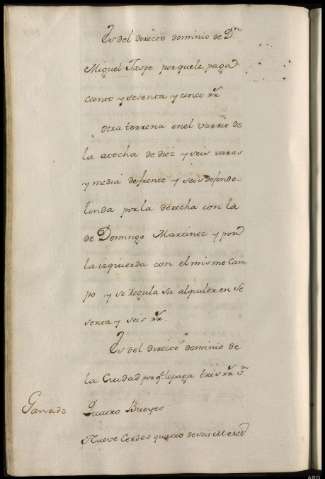 Es del directo dominio de Dn
Miguel Taspe porquele paga
ciento y setenta y cinco rr
Otra terrena en el varrio de
la atocha de diez y seis varas
y media de frente y seis de fondo
linda por la derecha con la
de Domingo Martinez y por
la izquierda con el mismo Cam
po y se regula su alquiler en se
senta y seis rr
Es del directo dominio de
la Ciudad por q. le paga tres rr
Ganado Quatro Bueyes
Nueve Cerdos quatro de